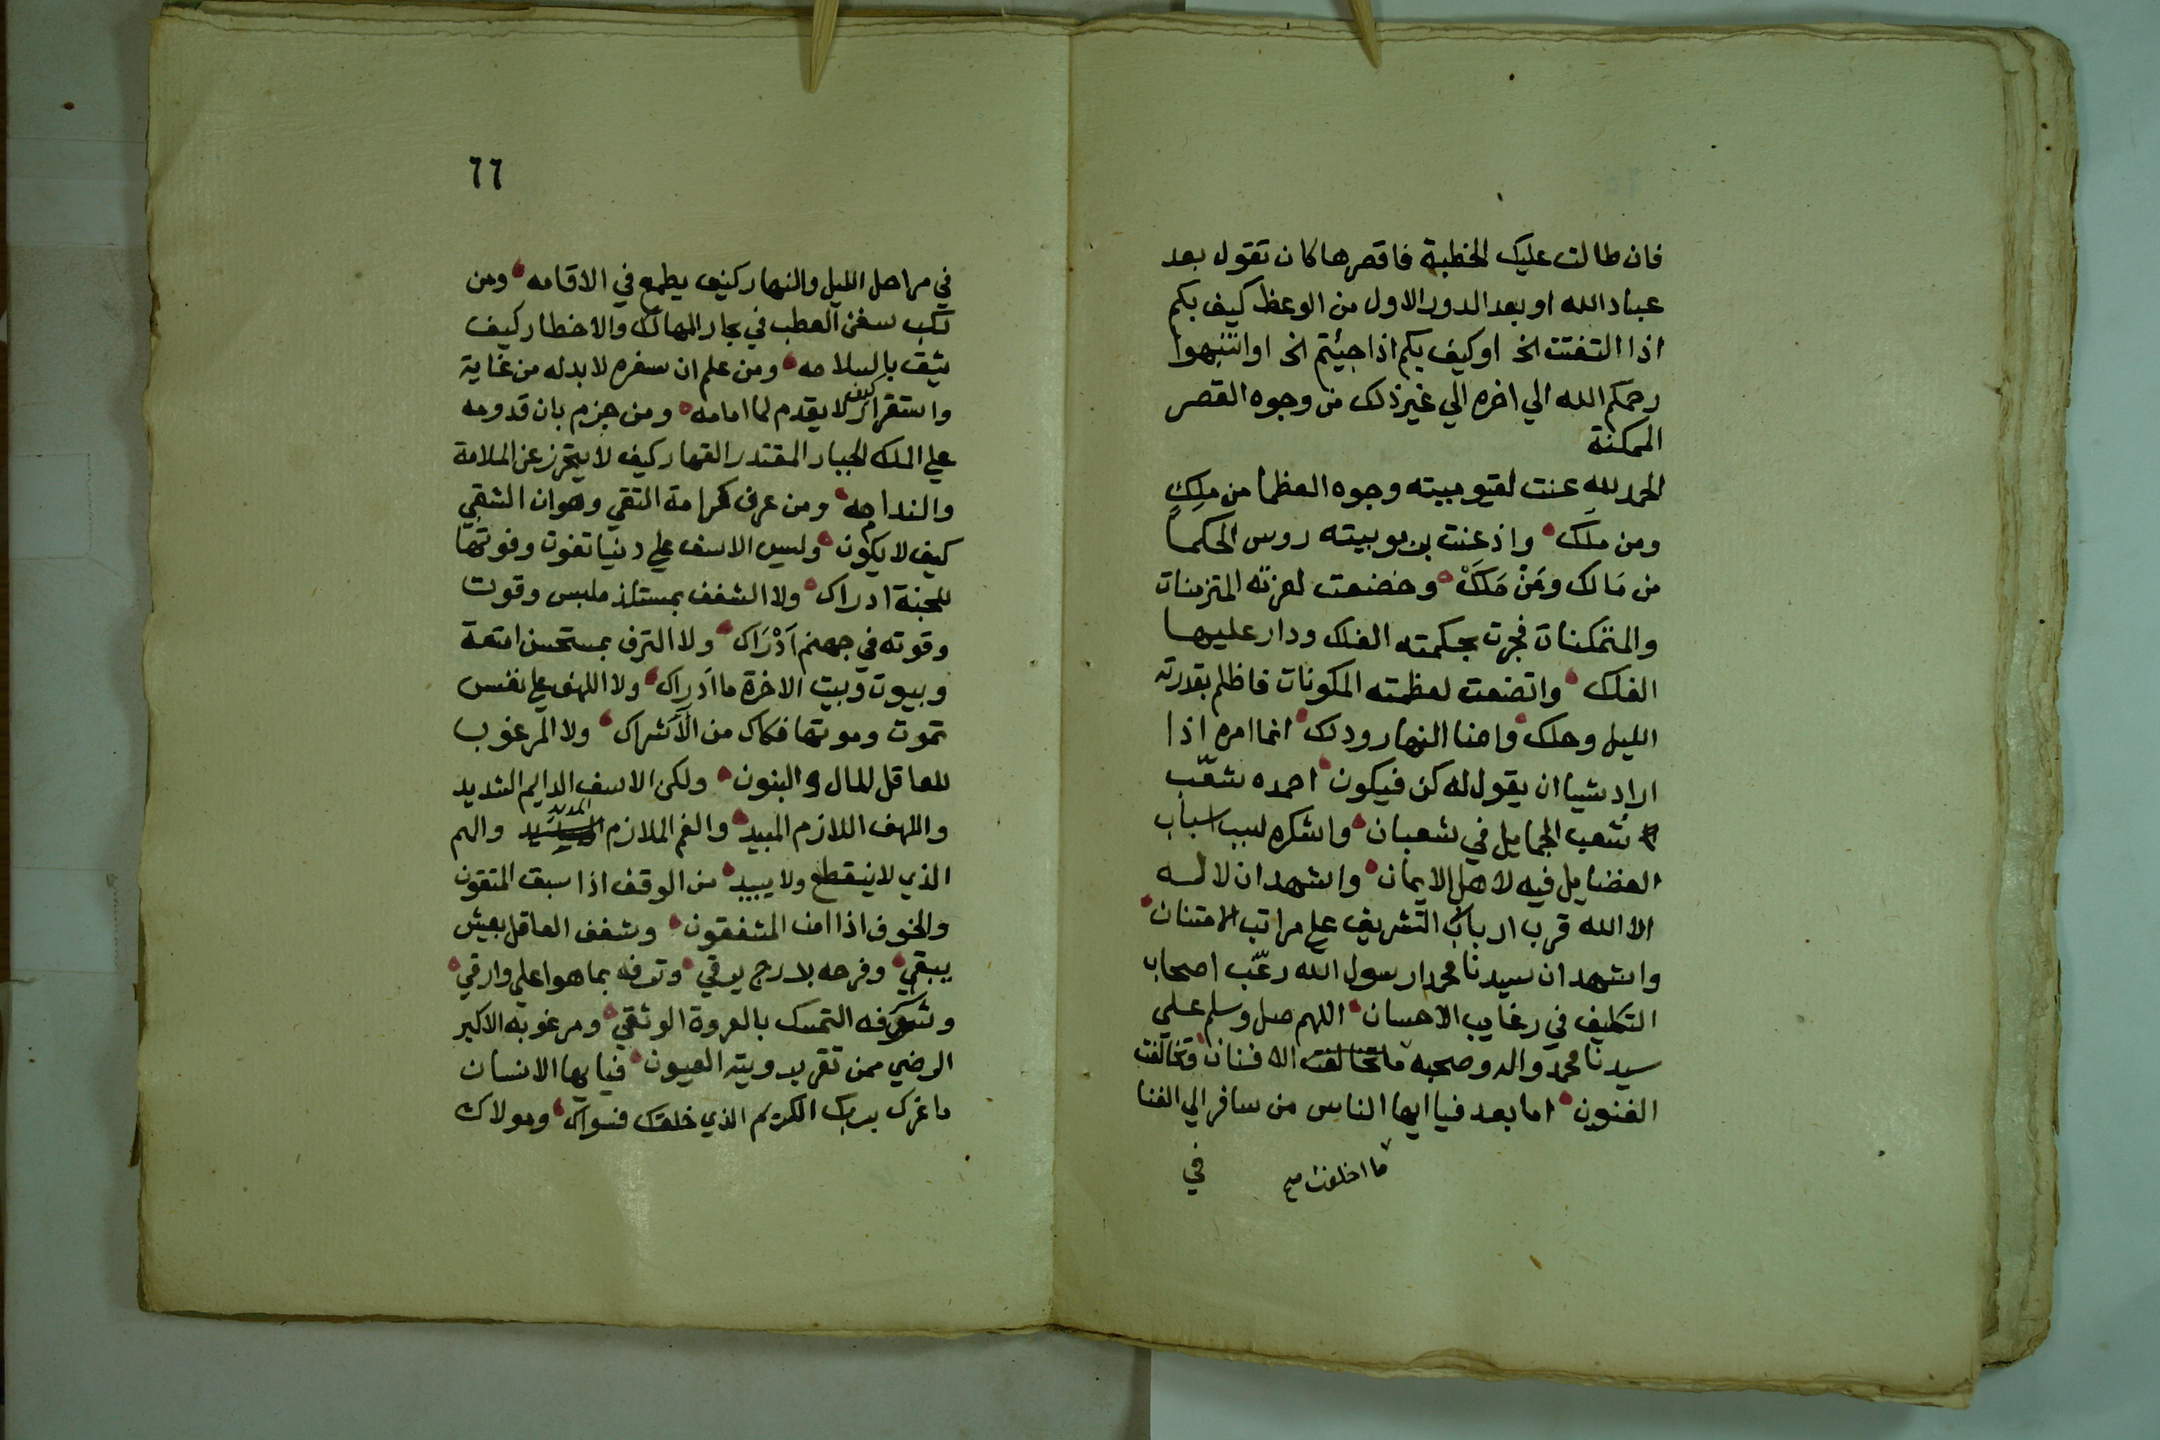 فان طالت عليك الخطبة فاقصرها كان تقول بعد
عباد الله او بعد الدور الاول من الوعظ كيف بكم
اذا التفتت الخ او كيف بكم اذا جيئتم الخ او انتبهوا
رحمكم الله الي اخره الي غير ذلك من وجوه القصر
الممكنة
الحمد لله عنت لقيوميته وجوه العظما من مِلِكٍ
ومن مَلَك واذعنت لربوبيته روس الحكما
من مَالك ومَنْ مَلَكَ وخضعت لعزته المتزينات
والمتمكنات فجرت بحكمته الفلك ودار عليها
الفلك واتضعت لعظمته المكونات فاظلم بقدرته
الليل وحلك واضا النهار ودلك انما امره اذا
اراد شيا ان يقول له كن فيكون احمده شعّب
شُعب الجمايل في شعبان واشكره لسبب اسباب
الفضايل فيه لاهل الايمان واشهد ان لا اله
الا الله قرب ارباب التشريف علي مراتب الامتنان
واشهد ان سيدنا محمدا رسول الله رغّب اصحاب
التكليف في رغايب الاحسان اللهم صل وسلم علي
سيدنا محمد واله وصحبه ما تخالفت الافنان وتخالفت
الفنون اما بعد فيا ايها الناس من سافر الي الفنا
ما اختلفت صح
في
٦٦
في مراحل الليل والنهار كيف يطمع في الاقامه ومن
ركب سفن العطب في بحار المهالك والاخطار كيف
يثق بالسلامه ومن علم ان سفره لا بد له من غاية
واستقرار كيف لا يقدم لما امامه ومن جزم بان قدومه
علي الملك الجبار المقتدر القهار كيف لا يتحرز عن الملامة
والندامه ومن عرف كرامة التقي وهوان الشقي
كيف لا يكون وليس الاسف علي دنيا تفوت وفوتها
للجنة ادراك ولا الشغف بمستلذ ملبس وقوت
وقوته في جهنم اَدْرَاك ولا الترف بمستحسن امتعة
وبيوت وبيت الاخرة ما اَدراك ولا اللهف علي نفس
تموت وموتها فكاك من الاَشراك ولا المرغوب
للعاقل المال والبنون ولكن الاسف الدايم الشديد
واللهف اللازم المبيد والغم الملازم المديد والهم
الذي لا ينقطع ولا يبيد من الوقف اذا سبق المتقون
والخوف اذا امن المشفقون وشغف العاقل بعيش
يبقي وفرحه بدرج يرقي وترفه بما هو اعلي وارقي
وشرفه التمسك بالعروة الوثقي ومرغوبه الاكبر
الرضي ممن تقر برويته العيون فيا ايها الانسان
ما غرك بربك الكريم الذي خلقك فسواك ومولاك